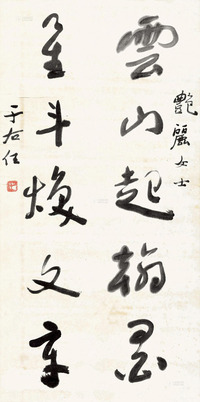 艷麗女士
雲山起翰墨
星斗煥文章
于右任